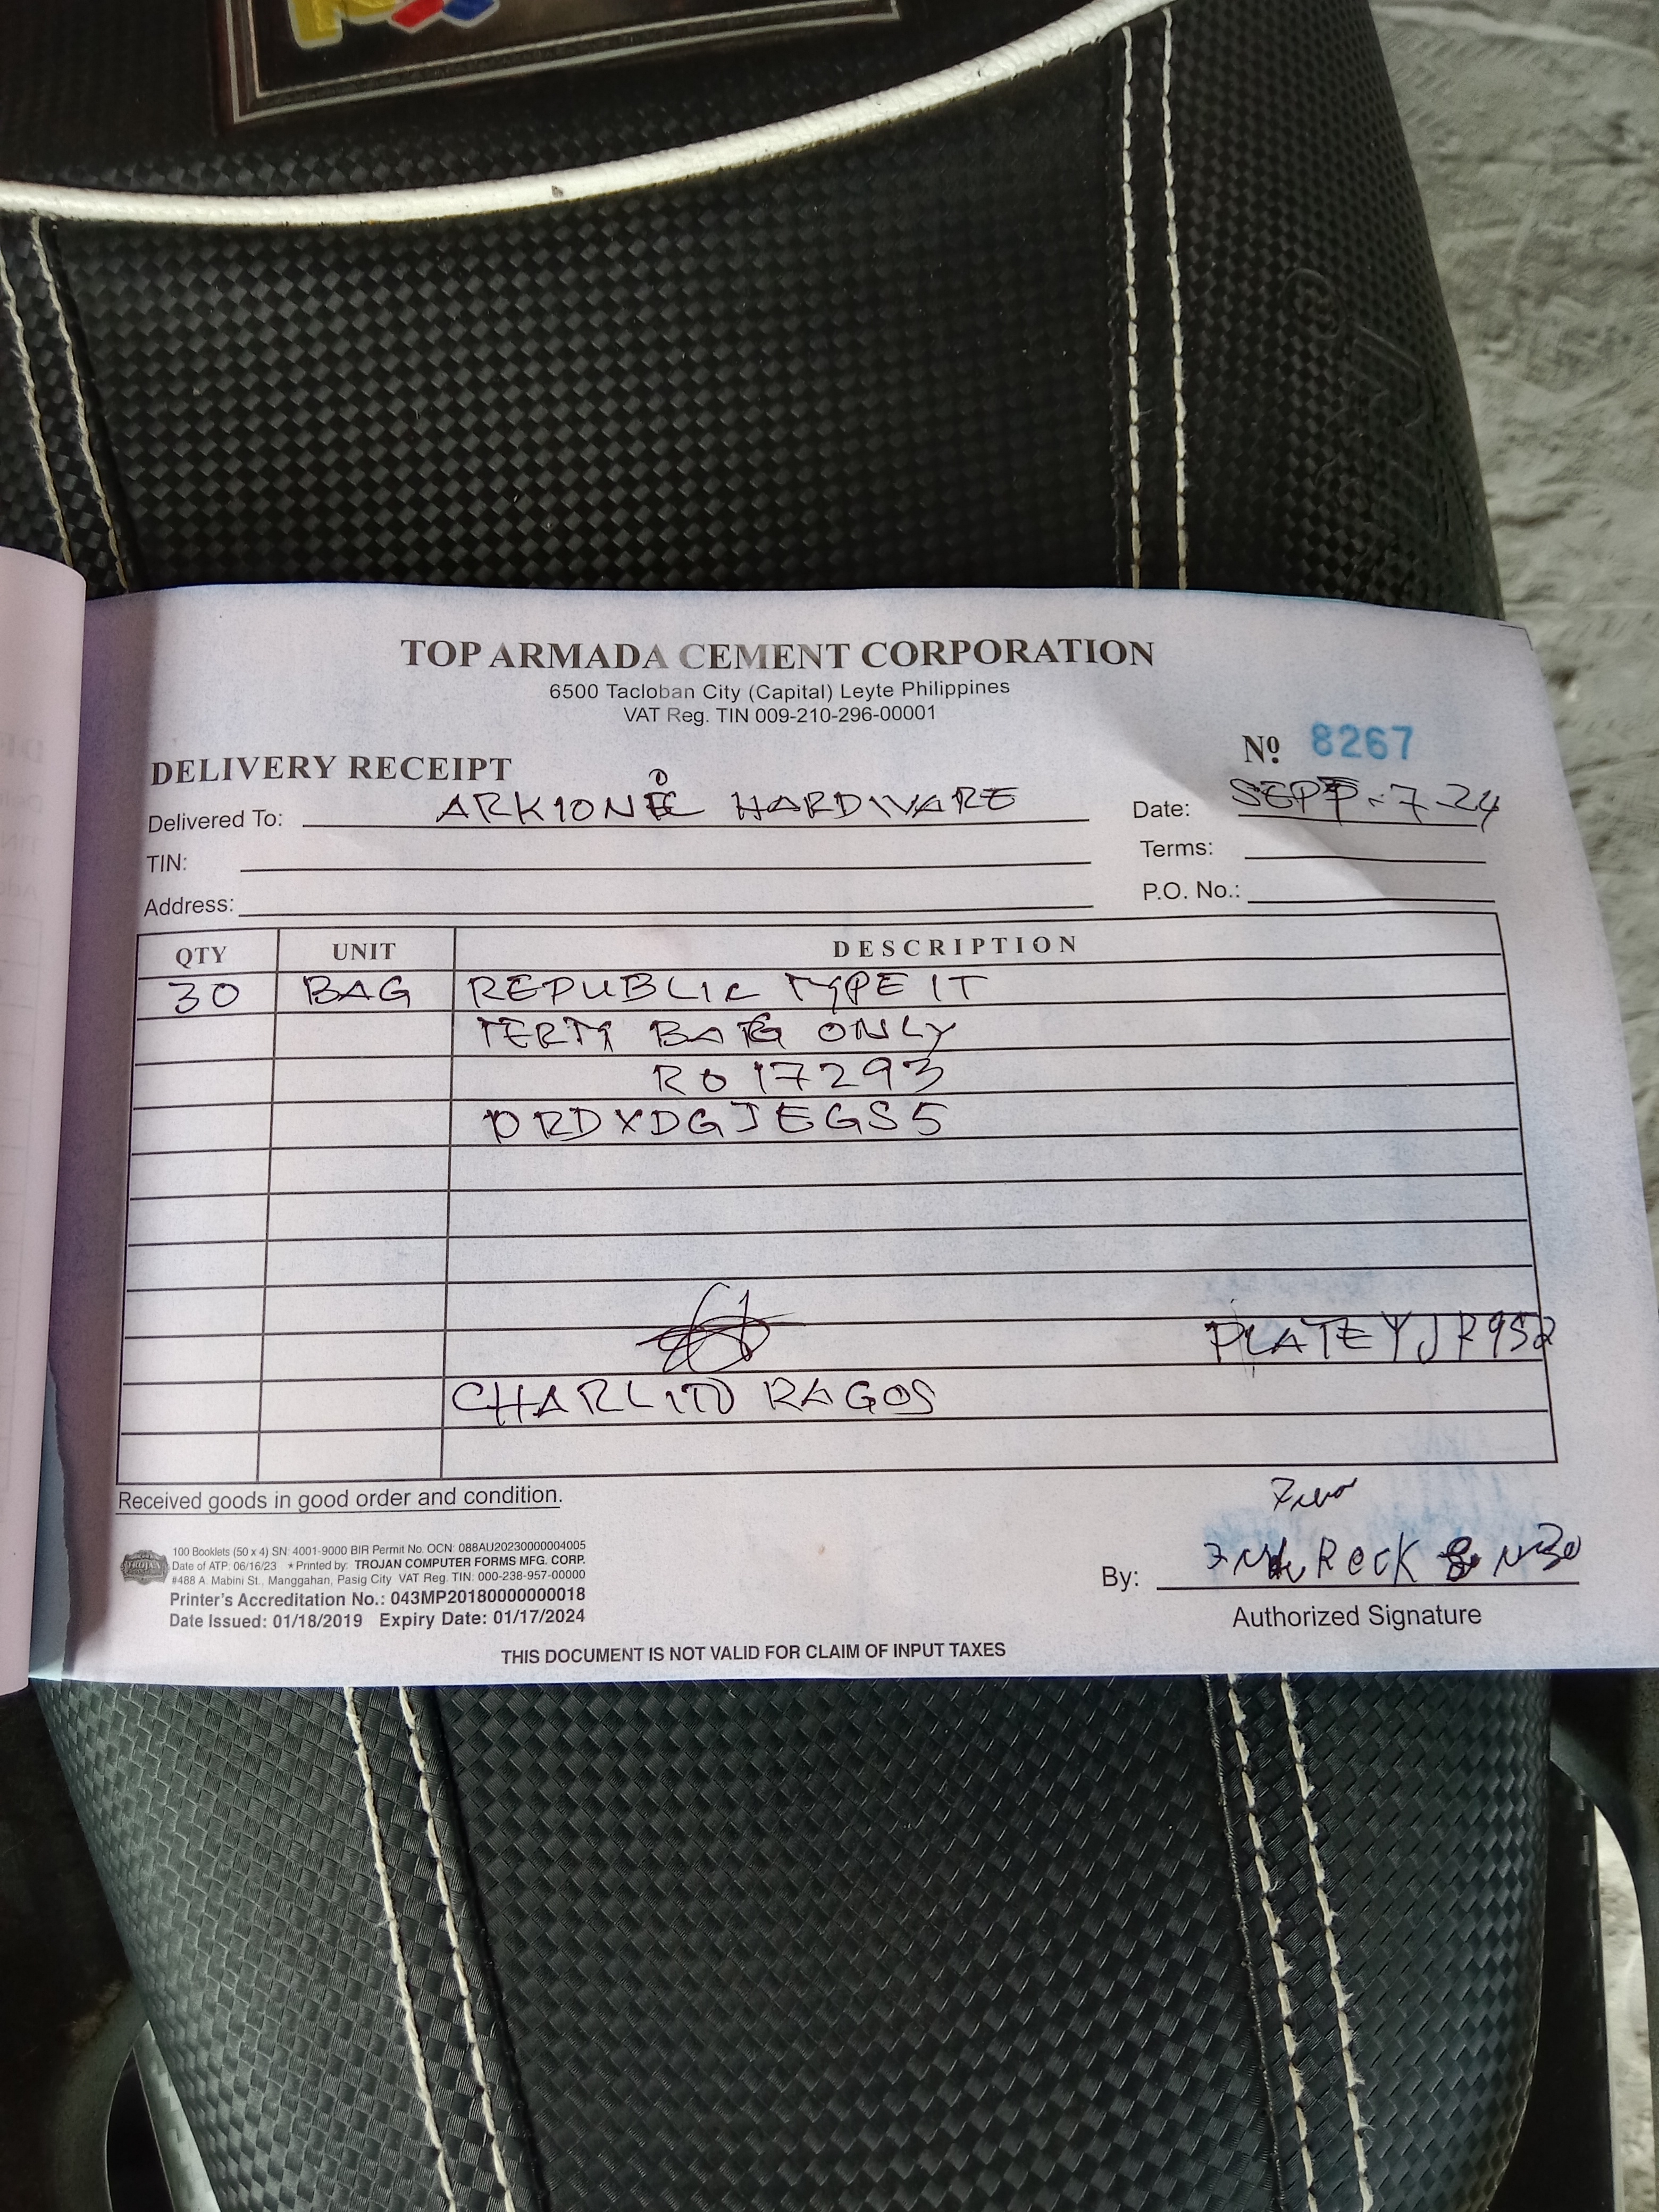 TOP ARMADA CEMENT CORPORATION
6500 Tacloban City (Capital) Leyte Philippines
VAT Reg. TIN 009-210-296-00001
Nº 8267
DELIVERY RECEIPT
Delivered To: HARDWARE
Date: SEPT-7-24
TIN:
Terms:
Address:
P.O. No.:
QTY UNIT DESCRIPTION
30 BAG REPUBLIC TYPE IT
TERM BAG ONLY
RO 17293
ORDXDGJEGS5
PLATE
CHARLITO RAGOS
Received goods in good order and condition.
100 Booklets (50 x 4) SN: 4001-9000 BIR Permit No. OCN: 088AU20230000004005
Date of ATP: 06/16/23 * Printed by: TROJAN COMPUTER FORMS MFG. CORP.
#488 A. Mabini St., Manggahan, Pasig City VAT Reg. TIN: 000-238-957-00000
TROJAN
Printer's Accreditation No.: 043MP20180000000018
Date Issued: 01/18/2019 Expiry Date: 01/17/2024
By: Rock
Authorized Signature
THIS DOCUMENT IS NOT VALID FOR CLAIM OF INPUT TAXES